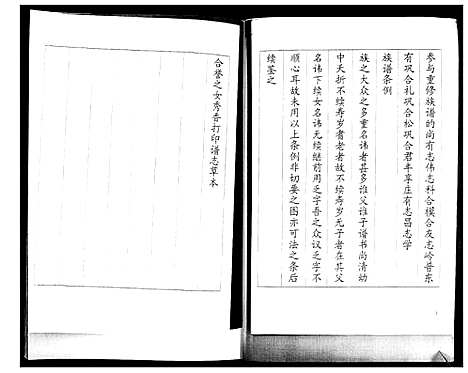 参与重修族谱的尚有志伟志科合模合友志岭普东
有巩合礼巩合松巩合君丰享庄有志昌志学
族谱条例
族之大众之多重名讳者甚多谁父谁子谱书尚清幼
中夭折不续寿岁耆老者故不续寿岁无子者在其父
名讳下续女名讳无续继前用乏字吾之众议乏字不
顺心耳故未用以上条例非切要之图亦可法之条后
续鉴之
合誉之女秀香打印谱志草本